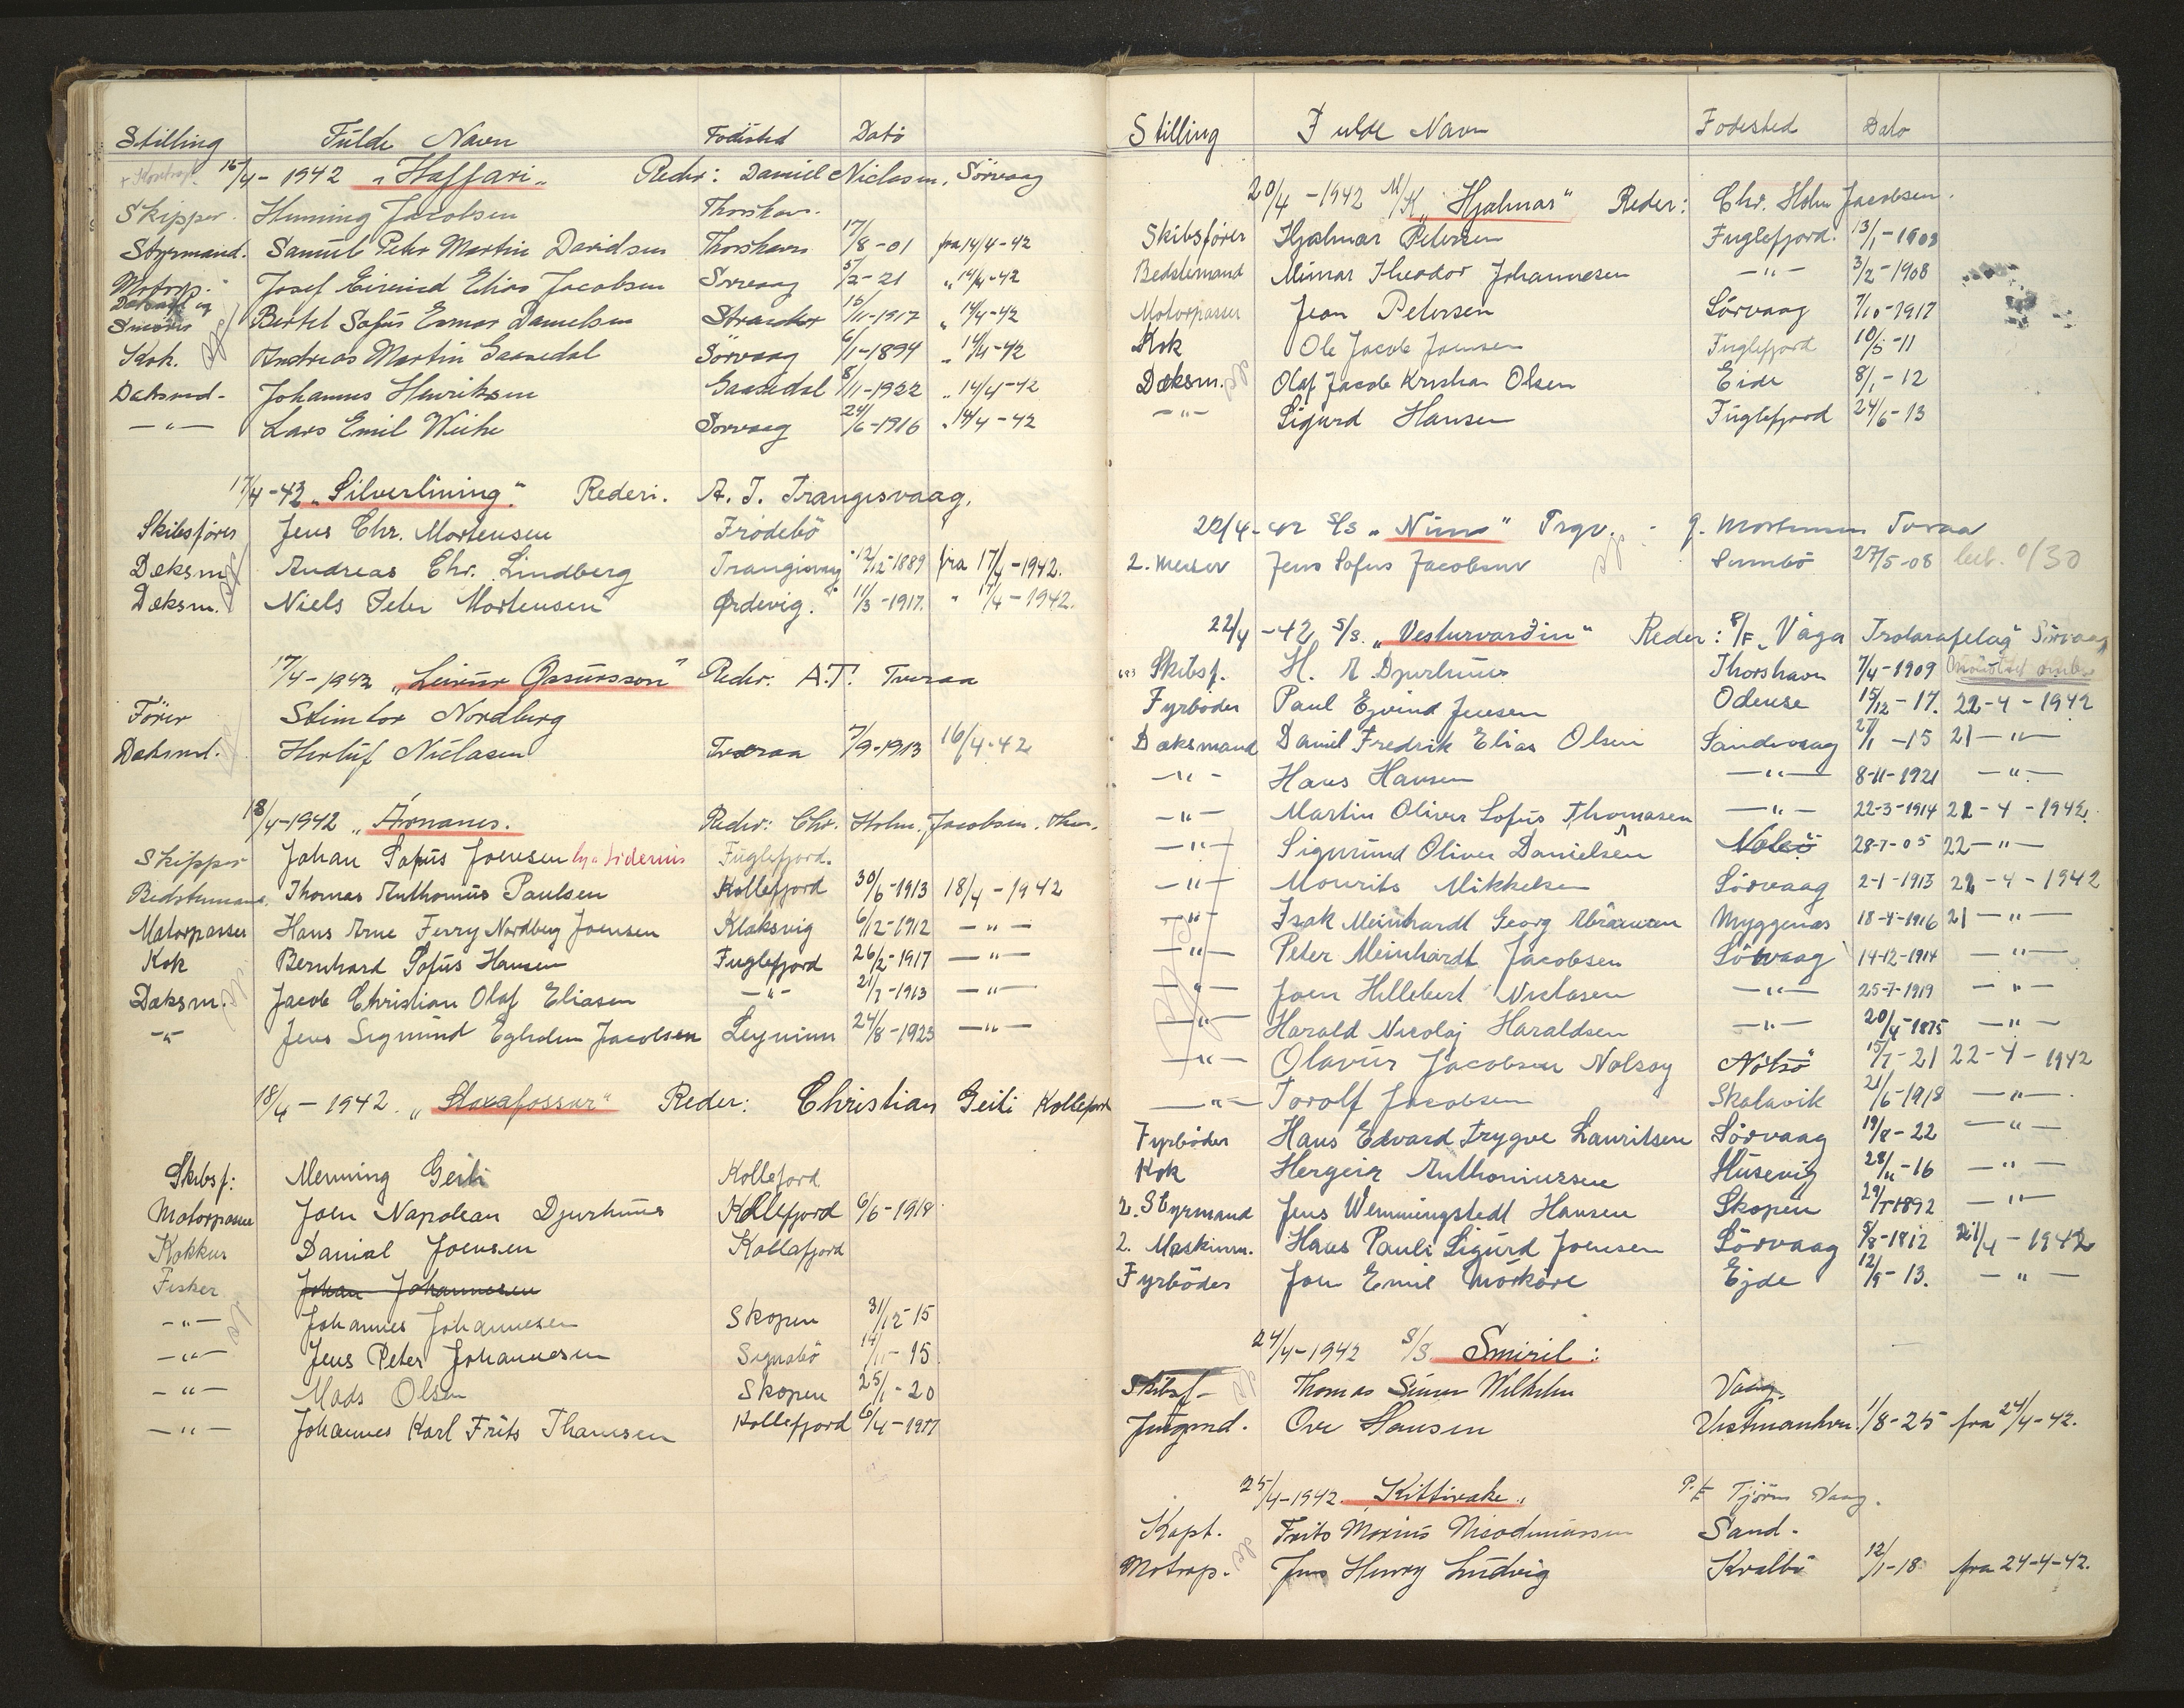 Stilling Fulde Navn Födested Dato
15/4 - 1942 "Haffari" Reder: Daniel Niclasen, Sörvaag
Skipper. Henning Jacobsen Thorshavn.
Styrmand. Samuel Peter Martin Davidsen Thorshavn 17/8-01 fra 14/4-42
Motorp. Josef Eivind Elias Jacobsen Sorvaag 5/2-21 " 14/4-42
Bertel Sofus Danielsen 15/11-1917 " 14/4-42
Kok. Andreas Martin Gaasedal Sörvaag 6/1-1894 " 14/4-42
Deksmd. Johannes Henriksen Gaasedal 8/11-1922 " 14/4-42
-"- Lars Emil Weihe Sorvaag 24/6-1916 " 14/4-42
17/4-42 "Silverlining" Rederi. A. T. Trangisvaag.
Skibsförer Jens Chr. Mortensen Frodebö
Deksm. Andreas Chr. Lindberg Trangisvaag 12/12-1889 fra 17/4-1942.
Deksm. Niels Peter Mortensen Ördevig. 11/3-1917. " 17/4-1942.
17/4-1942 "Leivur Øssursson" Reder. A.T. Tveraa
Förer Nordberg
Deksmd. Herluf Niclasen Tveraa 7/9-1913 16/4-42
18/4-1942 "Árnanes. Reder: Chr. Holm. Jacobsen. Thor.
Skipper Johan Sofus Joensen Fuglefjord.
Bedstemand. Thomas Anthonius Paulsen Kollefjord 30/6-1913 18/4-1942
Motorpasser Hans Arne Ferry Nordberg Joensen Klaksvig 6/12-1912 -"-
Kok Bernhard Sofus Hansen Fuglefjord 26/2-1917 -"-
Deksm. Jacob Christian Olaf Eliasen -"- 21/7-1913 -"-
-"- Jens Sigmund Jacobsen Leynum 24/8-1925 -"-
18/4 - 1942. "Stoxafossur" Reder: Christian Geili Kollefjord
Skibsf: Menning Geili Kollefjord
Motorpasser Joen Napolean Djurhuus Kollefjord 6/6-1918
Kokkur Danial Joensen Kollafjord
Fisker Johan Johannesen
-"- Johannes Johannesen Skopen 31/12-15
-"- Jens Peter Johannesen Signabö 14/11-15
-"- Mads Olsen Skopen 25/1-20
-"- Johannes Karl Frits Thomsen Kollefjord 6/4-1917
Stilling Fulde Navn Fodested Dato
20/4-1942 M/K "Hjalmar" Reder: Chr. Holm Jacobsen.
Skibsförer Hjalmar Petersen Fuglefjord. 13/1-1903
Bedstemand Theodor Johannesen -"- 3/2-1908
Motorpasser Jean Petersen Sörvaag 7/10-1917
Kok Ole Jacob Joensen Fuglefjord 10/5-11
Deksm. Olaf Jacob Kristian Olsen Eide 8/1-12
-"- Sigurd Hansen Fuglefjord 24/6-13
22/4-42 S/S "Nima" Trgv. J. Mortensen Tveraa
2. mester Jens Sofus Jacobsen Sumbö 27/5-08
22/4-42 S/S. "Vesturvarðin" Reder: P/F "Vága Trolarafelag" Sörvaag
Skibsf. H. A Djurhuus Thorshavn 7/4-1909
Fyrböder Paul Ejvind Jensen Odense 15/12-17. 22-4-1942
Dæksmand Daniel Fredrik Elias Olsen Sandevaag 27/1-15 21-"-
-"- Hans Hansen -"- 8-11-1921 -"-
-"- Martin Oliver Sofus Thomasen -"- 22-3-1914 21-4-1942.
-"- Sigmund Oliver Danielsen Nolsö 28-7-05 22-"-
-"- Mourits Mikkelsen Sörvaag 2-1-1913 22-4-1942
-"- Isak Meinhardt Georg Abrahamsen Myggenæs 18-4-1916 21-"-
-"- Peter Meinhardt Jacobsen Sörvaag 14-12-1914 -"-
-"- Joen Hillebert Niclasen -"- 25-7-1919 -"-
-"- Harald Nicolaj Haraldsen -"- 20/4-1875 -"-
-"- Olavur Jacobsen Nolsoy Nolsö 15/7-21 22-4-1942
-"- Torolf Jacobsen Skalavik 21/6-1918 -"-
Fyrböder Hans Edvard Trygve Lauritsen Sörvaag 19/8-22 -"-
Kok Hergeir Anthoniussen Husevig 28/11-16 -"-
2. Styrmand Jens Wenningstedt Hansen Skopen 29/5-1892 -"-
2. Maskinm. Hans Pauli Sigurd Joensen Sörvaag 5/8-1912 21/4-1942
Fyrböder Jon Emil Mörköre Ejde 12/9-13. -"-
24/4-1942 S/S Smiril:
Skibsf- Thomas Simun Wilhelm Vaag.
Jungmd. Ove Hansen Vestmanhvn. 1/8-25 fra 24/4-42.
25/4-1942. Kittiwake" P/F Tjörn Vaag.
Kapt. Frits Marius Nicodemussen Sand.
Motorp. Jens Henry Ludvig Kvalbö 12/1-18 fra 24-4-42.